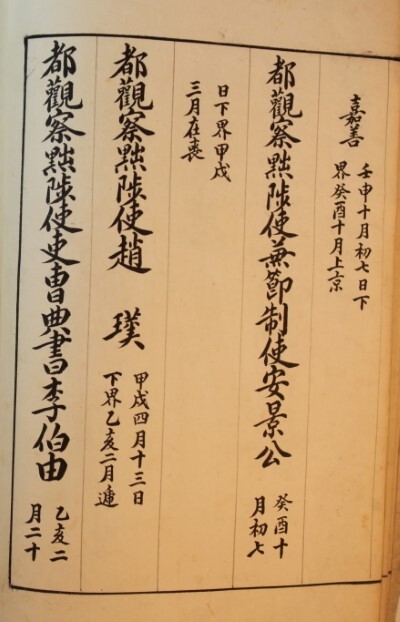 嘉善
壬申十月初七日下
界癸酉十月上京
都觀察黜陟使兼節制使安景公
癸酉十
月初七
日下界甲戌
三月在喪
都觀察黜陟使趙 璞
甲戌四月十三日
下界乙亥二月遞
都觀察黜陟使吏曹典書李伯由
乙亥二
月二十